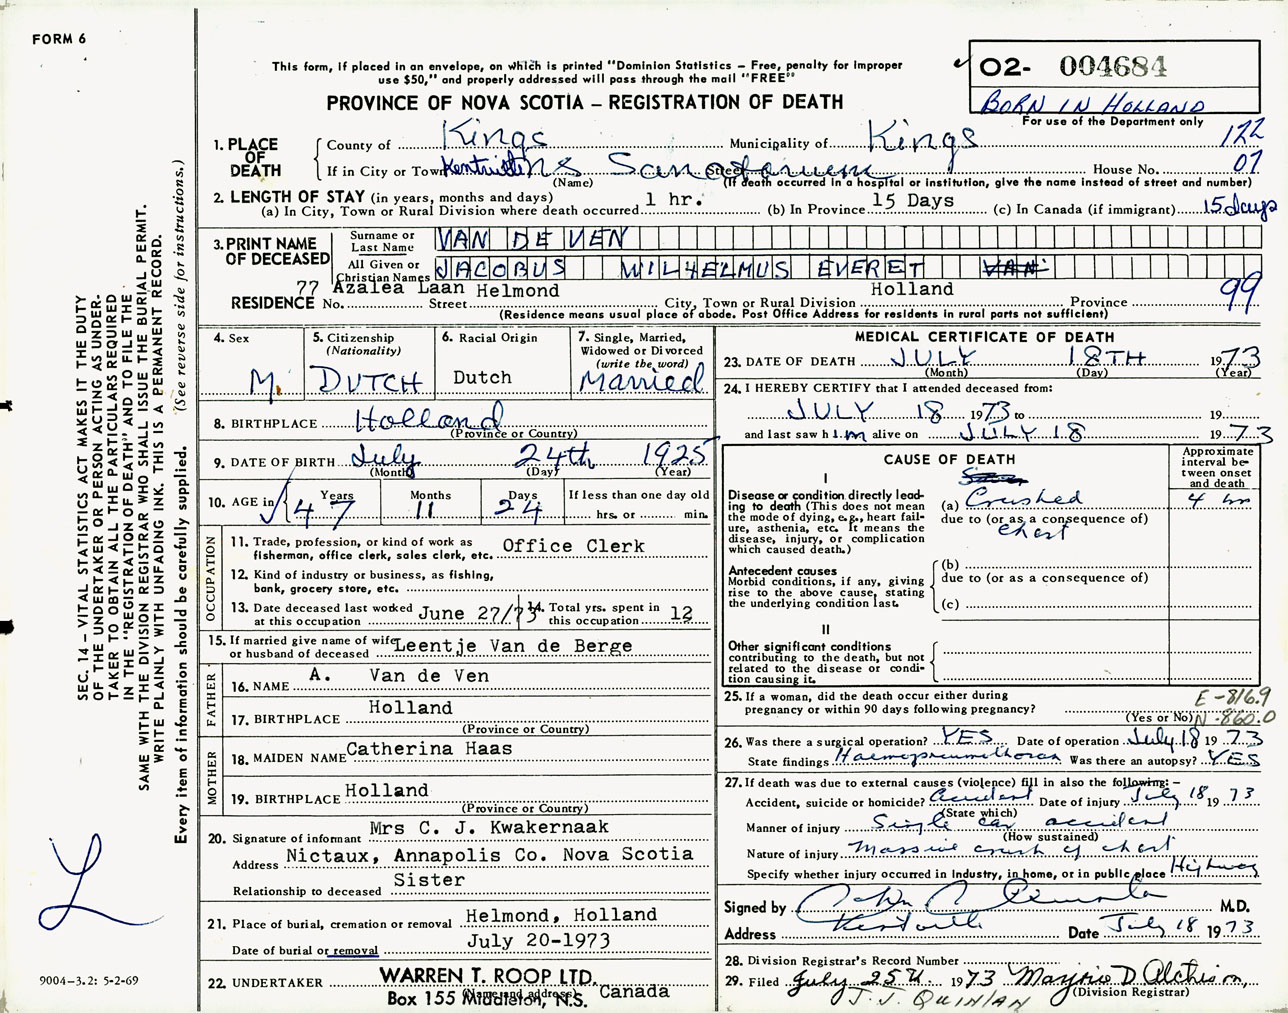 FORM 6
This form, if placed in an envelope, on which is printed "Dominion Statistics – Free, penalty for improper
use $50," and properly addressed will pass through the mail "FREE"
PROVINCE OF NOVA SCOTIA – REGISTRATION OF DEATH
✓ 02- 004684
BORN IN HOLLAND
For use of the Department only
122
07
1. PLACE OF DEATH
County of Kings Municipality of Kings
If in City or Town Kentville Street House No.
(Name) (If death occurred in a hospital or institution, give the name instead of street and number)
2. LENGTH OF STAY (in years, months and days)
(a) In City, Town or Rural Division where death occurred 1 hr. (b) In Province 15 Days (c) In Canada (if immigrant) 15 days
3. PRINT NAME OF DECEASED
Surname or Last Name VAN DE VEN
All Given or Christian Names JACOBUS WILHELMUS EVERET VAN
77 Azalea Laan Helmond Holland 99
RESIDENCE No. Street City, Town or Rural Division Province
(Residence means usual place of abode. Post Office Address for residents in rural parts not sufficient)
4. Sex M.
5. Citizenship (Nationality) DUTCH
6. Racial Origin Dutch
7. Single, Married, Widowed or Divorced (write the word) Married
8. BIRTHPLACE Holland
(Province or Country)
9. DATE OF BIRTH July 24th 1925
(Month) (Day) (Year)
10. AGE in Years 47 Months 11 Days 24 If less than one day old
hrs. or min.
OCCUPATION
11. Trade, profession, or kind of work as
fisherman, office clerk, sales clerk, etc. Office Clerk
12. Kind of industry or business, as fishing,
bank, grocery store, etc.
13. Date deceased last worked at this occupation June 27/73
14. Total yrs. spent in this occupation 12
15. If married give name of wife
or husband of deceased Leentje Van de Berge
FATHER
16. NAME A. Van de Ven
17. BIRTHPLACE Holland
(Province or Country)
MOTHER
18. MAIDEN NAME Catherina Haas
19. BIRTHPLACE Holland
(Province or Country)
20. Signature of informant Mrs C. J. Kwakernaak
Address Nictaux, Annapolis Co. Nova Scotia
Relationship to deceased Sister
21. Place of burial, cremation or removal Helmond, Holland
Date of burial or removal July 20-1973
22. UNDERTAKER WARREN T. ROOP LTD.
(Name and address)
Box 155 Middleton, N.S. Canada
MEDICAL CERTIFICATE OF DEATH
23. DATE OF DEATH JULY 18TH 1973
(Month) (Day) (Year)
24. I HEREBY CERTIFY that I attended deceased from:
JULY 18 1973 to 19
and last saw him alive on JULY 18 1973
CAUSE OF DEATH
Approximate interval between onset and death
I
Disease or condition directly leading to death (This does not mean
the mode of dying, e.g., heart failure, asthenia, etc. It means the
disease, injury, or complication
which caused death.)
(a) Crushed 4 hrs
due to (or as a consequence of)
chest
Antecedent causes
Morbid conditions, if any, giving
rise to the above cause, stating
the underlying condition last.
(b)
due to (or as a consequence of)
(c)
II
Other significant conditions
contributing to the death, but not
related to the disease or condition causing it.
25. If a woman, did the death occur either during
pregnancy or within 90 days following pregnancy?
(Yes or No)
E-816.9
N-860.0
26. Was there a surgical operation? YES Date of operation July 18 1973
State findings Haemopneumothorax Was there an autopsy? YES
27. If death was due to external causes (violence) fill in also the following: –
Accident, suicide or homicide? Accident Date of injury July 18 1973
(State which)
Manner of injury Single car accident
(How sustained)
Nature of injury Massive crush of chest
Specify whether injury occurred in industry, in home, or in public place Highway
Signed by M.D.
Address Kentville Date July 18 1973
28. Division Registrar's Record Number
29. Filed July 25th 1973
(Division Registrar)
J. J. QUINLAN
SEC. 14 – VITAL STATISTICS ACT MAKES IT THE DUTY
OF THE UNDERTAKER OR PERSON ACTING AS UNDERTAKER TO OBTAIN ALL THE PARTICULARS REQUIRED
IN THE "REGISTRATION OF DEATH" AND TO FILE THE
SAME WITH THE DIVISION REGISTRAR WHO SHALL ISSUE THE BURIAL PERMIT.
WRITE PLAINLY WITH UNFADING INK. THIS IS A PERMANENT RECORD.
Every item of information should be carefully supplied. (See reverse side for instructions.)
L
9004–3.2: 5-2-69